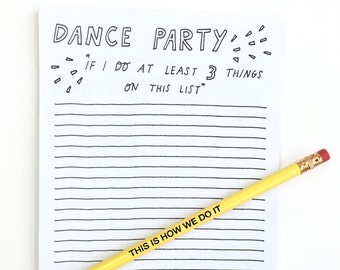 DANCE PARTY
*IF I DO AT LEAST 3 THINGS
ON THIS LIST*
THIS IS HOW WE DO IT